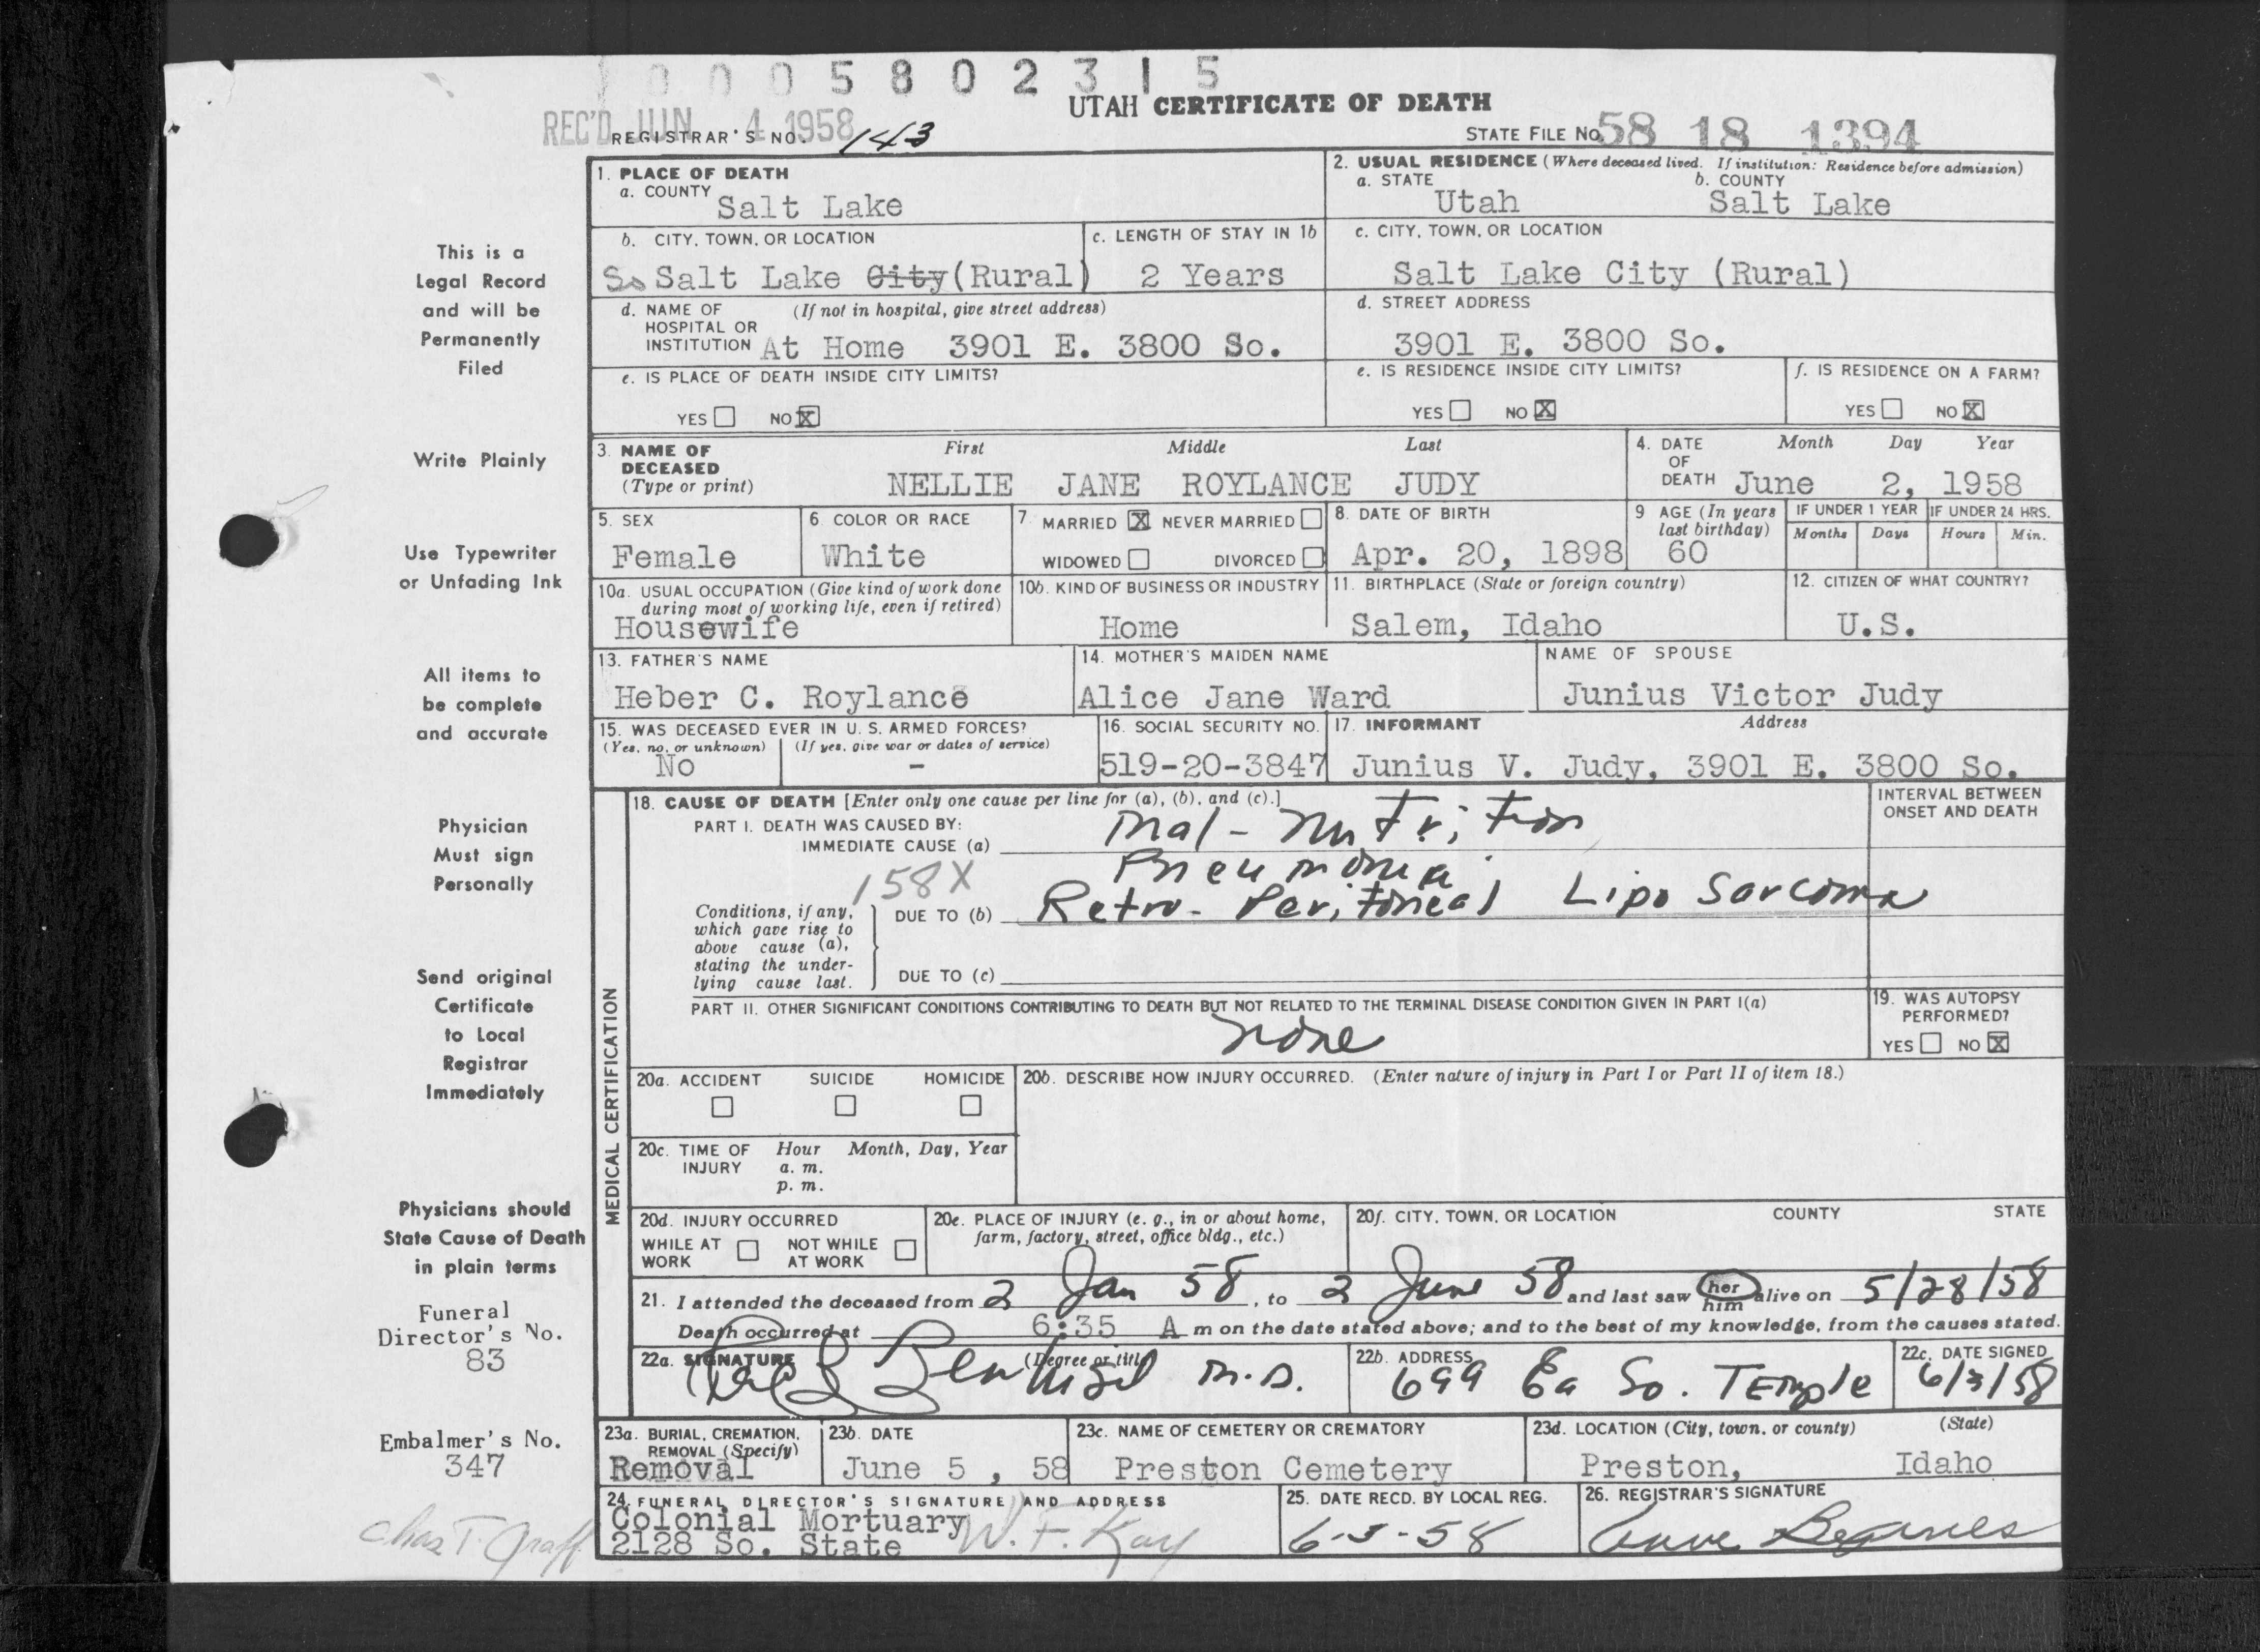 0 0 0 5 8 0 2 3 1 5
UTAH CERTIFICATE OF DEATH
REC'D JUN 4 1958
REGISTRAR'S NO. 143
STATE FILE NO. 58 18 1394
This is a
Legal Record
and will be
Permanently
Filed
Write Plainly
Use Typewriter
or Unfading Ink
All items to
be complete
and accurate
Physician
Must sign
Personally
Send original
Certificate
to Local
Registrar
Immediately
Physicians should
State Cause of Death
in plain terms
Funeral
Director's No.
83
Embalmer's No.
347
Chas T. Graff
1. PLACE OF DEATH
a. COUNTY
Salt Lake
2. USUAL RESIDENCE (Where deceased lived. If institution: Residence before admission)
a. STATE b. COUNTY
Utah Salt Lake
b. CITY, TOWN, OR LOCATION
So Salt Lake City (Rural)
c. LENGTH OF STAY IN 1b
2 Years
c. CITY, TOWN, OR LOCATION
Salt Lake City (Rural)
d. NAME OF (If not in hospital, give street address)
HOSPITAL OR
INSTITUTION At Home 3901 E. 3800 So.
d. STREET ADDRESS
3901 E. 3800 So.
e. IS PLACE OF DEATH INSIDE CITY LIMITS?
YES NO X
e. IS RESIDENCE INSIDE CITY LIMITS?
YES NO X
f. IS RESIDENCE ON A FARM?
YES NO X
3. NAME OF First Middle Last
DECEASED
(Type or print) NELLIE JANE ROYLANCE JUDY
4. DATE Month Day Year
OF
DEATH June 2, 1958
5. SEX
Female
6 COLOR OR RACE
White
7. MARRIED X NEVER MARRIED
WIDOWED DIVORCED
8. DATE OF BIRTH
Apr. 20, 1898
9 AGE (In years
last birthday)
60
IF UNDER 1 YEAR
Months Days
IF UNDER 24 HRS.
Hours Min.
10a. USUAL OCCUPATION (Give kind of work done
during most of working life, even if retired)
Housewife
10b. KIND OF BUSINESS OR INDUSTRY
Home
11. BIRTHPLACE (State or foreign country)
Salem, Idaho
12. CITIZEN OF WHAT COUNTRY?
U.S.
13. FATHER'S NAME
Heber C. Roylance
14. MOTHER'S MAIDEN NAME
Alice Jane Ward
NAME OF SPOUSE
Junius Victor Judy
15. WAS DECEASED EVER IN U. S. ARMED FORCES?
(Yes, no, or unknown) (If yes, give war or dates of service)
No -
16. SOCIAL SECURITY NO.
519-20-3847
17. INFORMANT Address
Junius V. Judy, 3901 E. 3800 So.
MEDICAL CERTIFICATION
18. CAUSE OF DEATH [Enter only one cause per line for (a), (b), and (c).]
INTERVAL BETWEEN
ONSET AND DEATH
PART I. DEATH WAS CAUSED BY:
IMMEDIATE CAUSE (a) Mal-Nutrition
Pneumonia
158X
Conditions, if any,
which gave rise to
above cause (a),
stating the under-
lying cause last.
DUE TO (b) Retro-Peritoneal Lipo Sarcoma
DUE TO (c)
PART II. OTHER SIGNIFICANT CONDITIONS CONTRIBUTING TO DEATH BUT NOT RELATED TO THE TERMINAL DISEASE CONDITION GIVEN IN PART I(a)
None
19. WAS AUTOPSY
PERFORMED?
YES NO X
20a. ACCIDENT SUICIDE HOMICIDE
20b. DESCRIBE HOW INJURY OCCURRED. (Enter nature of injury in Part I or Part II of item 18.)
20c. TIME OF Hour Month, Day, Year
INJURY a. m.
p. m.
20d. INJURY OCCURRED
WHILE AT NOT WHILE
WORK AT WORK
20e. PLACE OF INJURY (e. g., in or about home,
farm, factory, street, office bldg., etc.)
20f. CITY, TOWN, OR LOCATION COUNTY STATE
21. I attended the deceased from 2 Jan 58, to 2 June 58 and last saw her him alive on 5/28/58
Death occurred at 6:35 A m on the date stated above; and to the best of my knowledge, from the causes stated.
22a. SIGNATURE (Degree or title)
M.D.
22b. ADDRESS
699 Ea So. Temple
22c. DATE SIGNED
6/3/58
23a. BURIAL, CREMATION,
REMOVAL (Specify)
Removal
23b. DATE
June 5, 58
23c. NAME OF CEMETERY OR CREMATORY
Preston Cemetery
23d. LOCATION (City, town, or county) (State)
Preston, Idaho
24. FUNERAL DIRECTOR'S SIGNATURE AND ADDRESS
Colonial Mortuary W. F. Kay
2128 So. State
25. DATE RECD. BY LOCAL REG.
6-3-58
26. REGISTRAR'S SIGNATURE